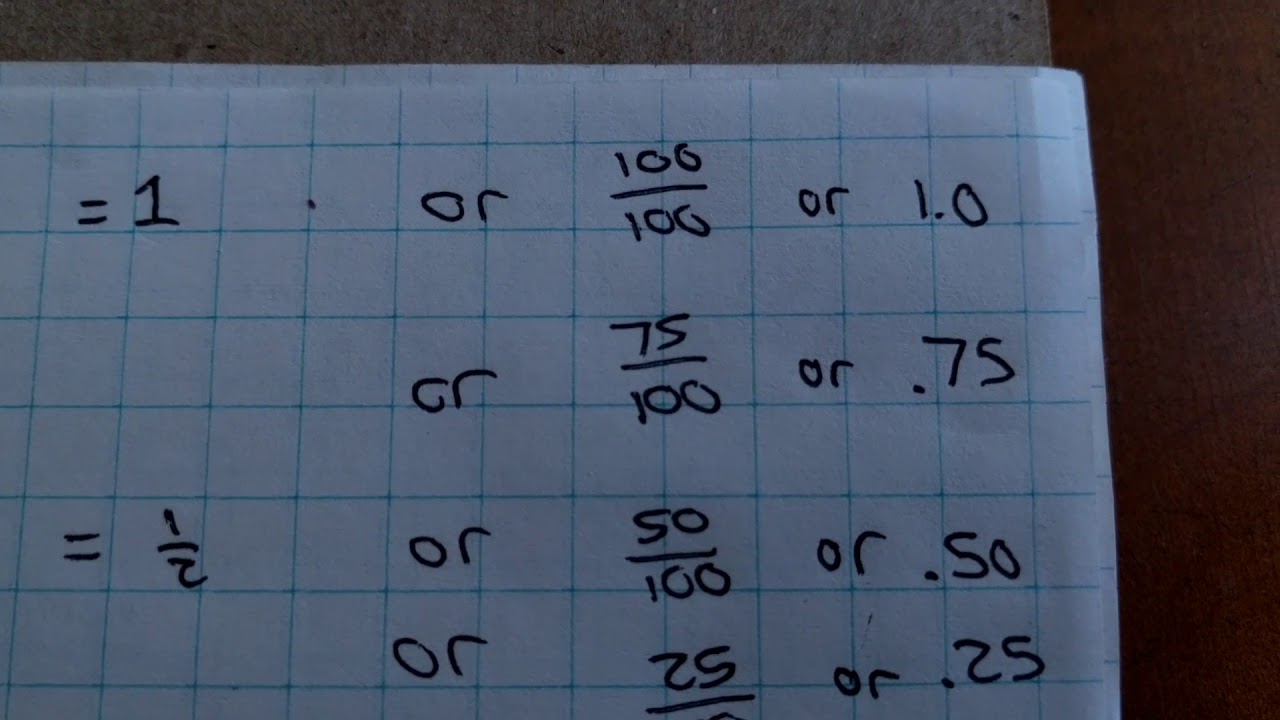 = 1 . or 100/100 or 1.0
or 75/100 or .75
= 1/2 or 50/100 or .50
or 25/ or .25